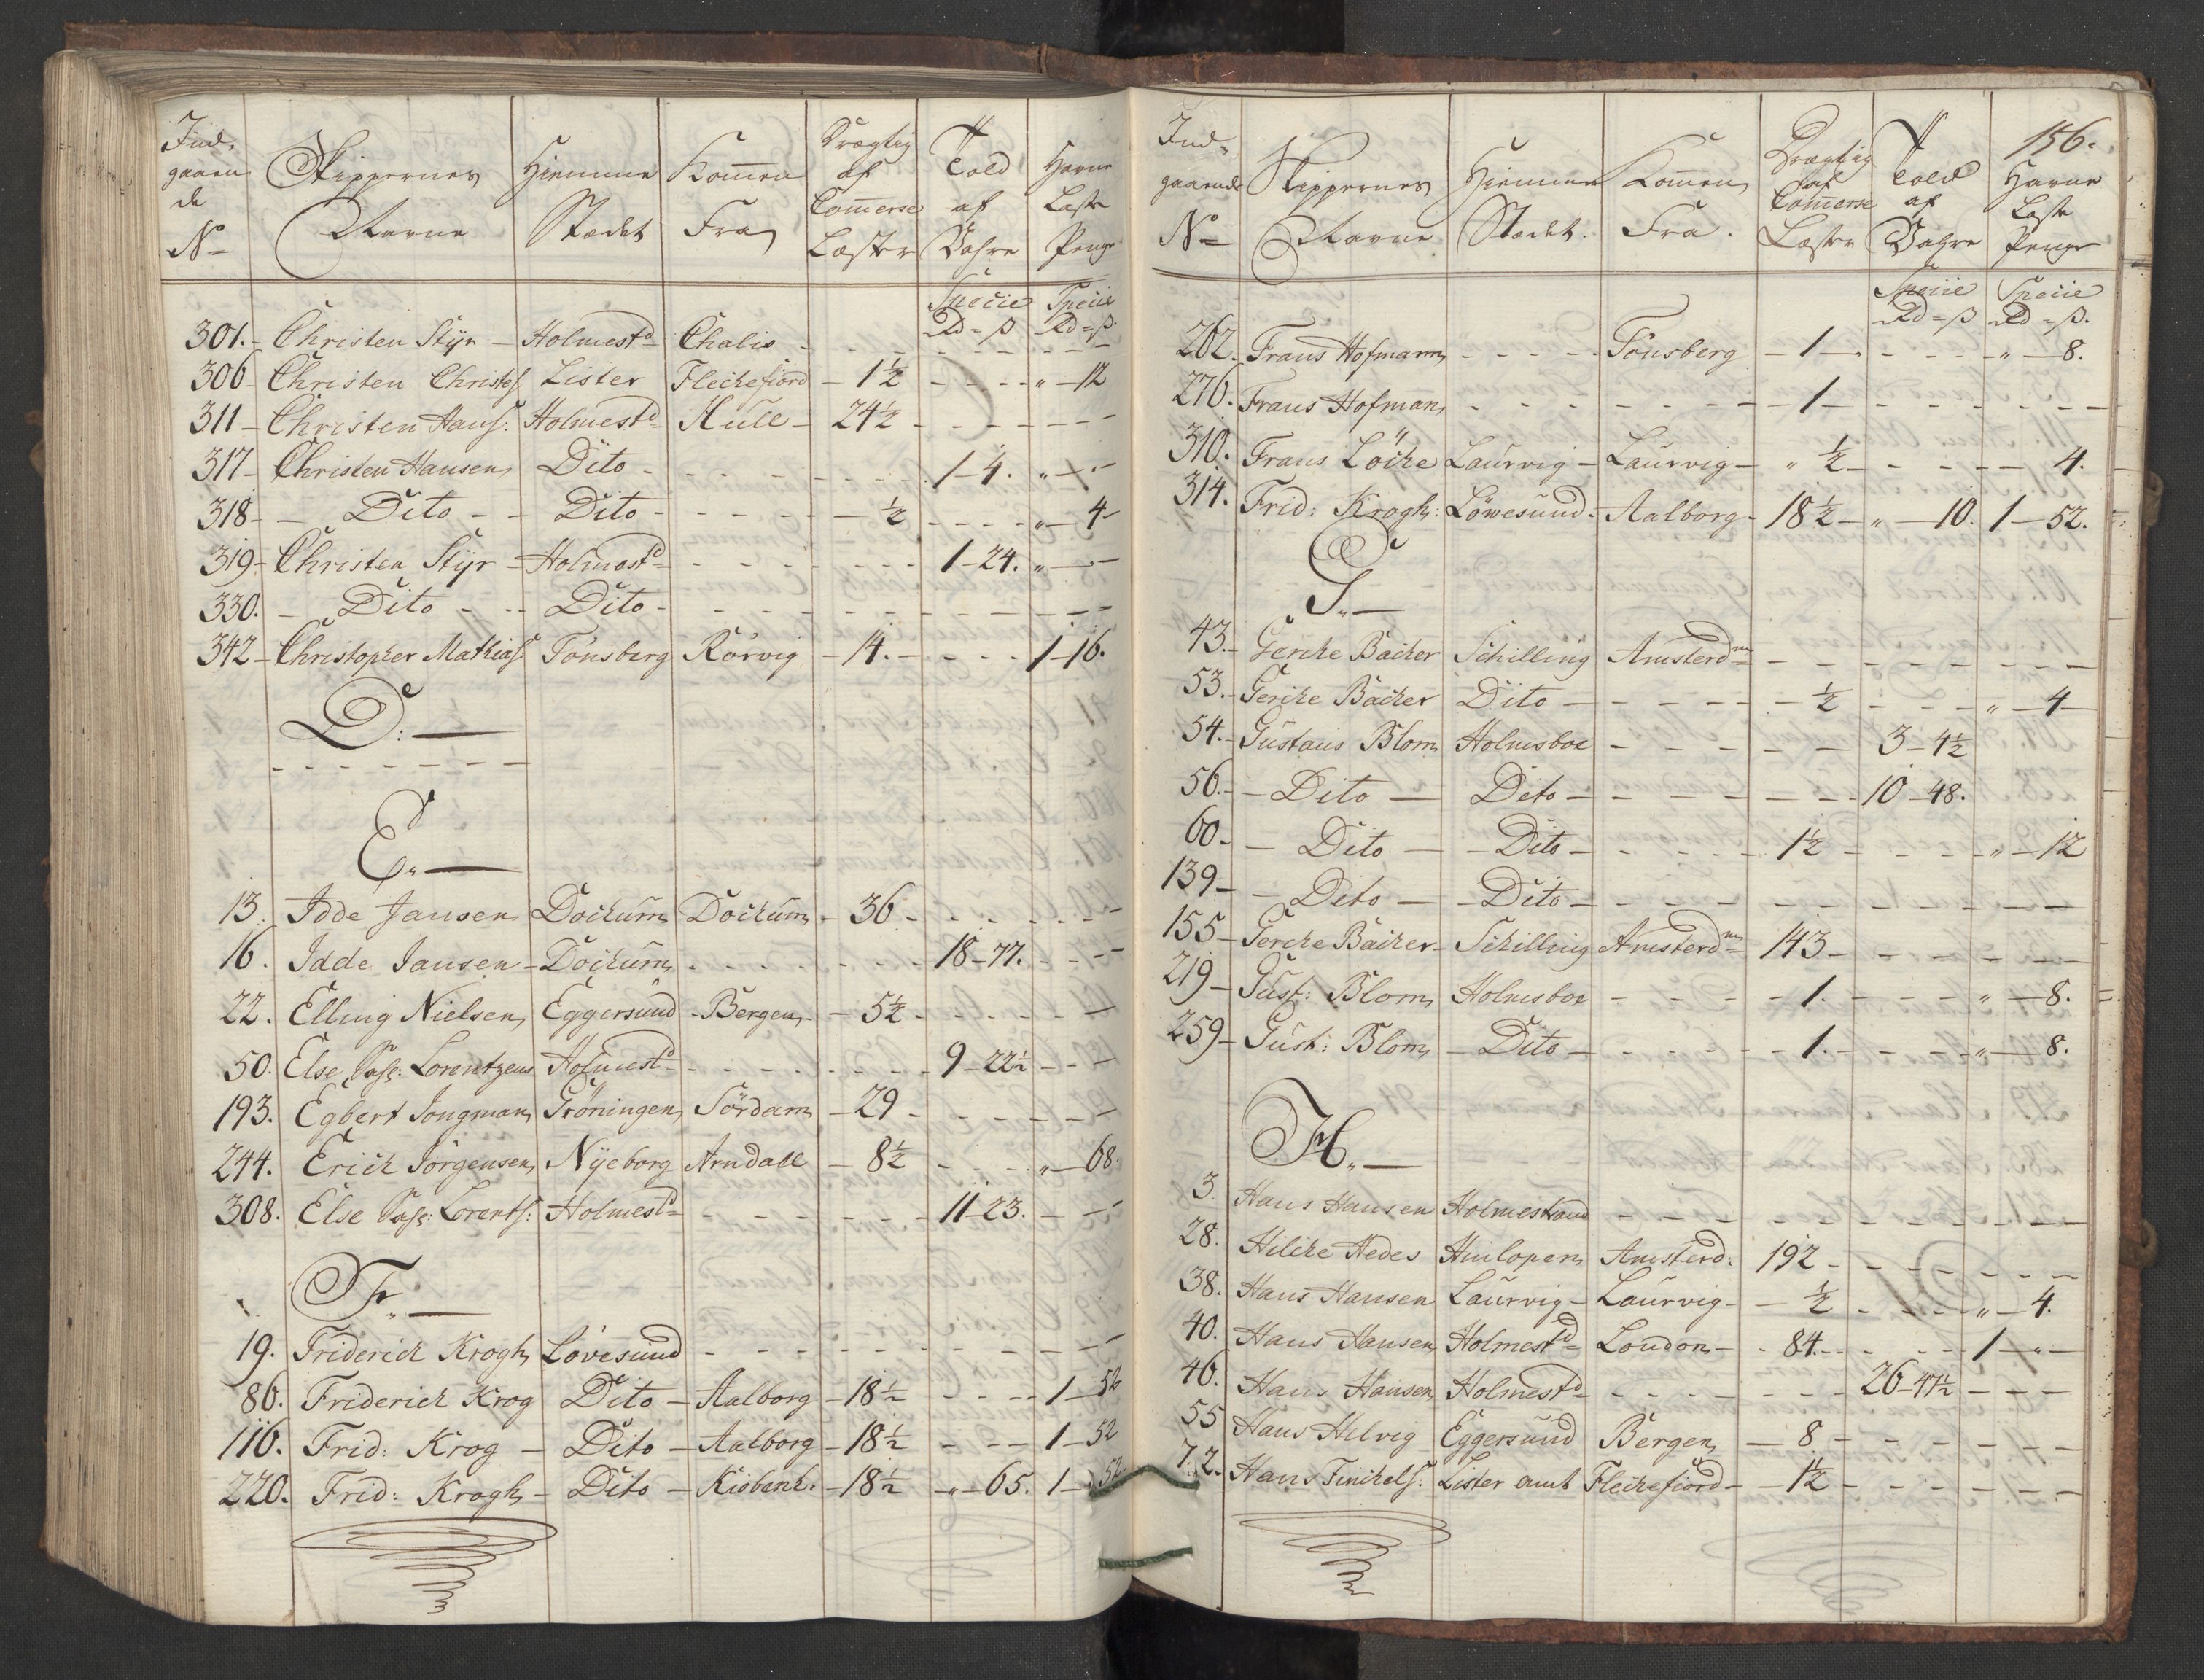 Ind-
gaaen
de
No
Skippernes
Navne
Hiemme
Stædet
Kommen
Fra
Drægtig
af
Commerse
Læster
Told
af
Vahre
Havne
Læste
Penge
Specie Specie
Rd = ß Rd = ß
301. - Christen Stÿr - Holmestd Chalis - - - - -
306 - Christen Christes Lister Fleckefiord - 1½ - - - „ - 12
311 - Christen Hans: Holmestd Hull - 24½ - - - - -
317 - Christen Hansen Dito - - - - - 1 - 4. „ - -
318 - - Dito - - Dito - - - - - ½ - - - - „ - 4 -
319 - Christen Stÿr - Holmestd - - - - - 1 - 24. „ - -
330. - Dito - - Dito - - - - - - - - -
342 - Christopher Mathias Tönsberg Rörvig - 14. - - - - 1 - 16.
D: -
- - - - - - -
E„ -
13. Idde Jansen Dockum Dockum - 36 - - - - -
16. Idde Jansen - Dockum - - - - - 18 - 77. - - -
22. Elling Nielsen Eggersund - Bergen - - 5½ - - - - -
50. Else Sahl: Lorentzens Holmestd - - - - - 9 - 22½ - - -
193. Egbert Jongman Gröningen Sördam - 29 - - - - -
244. Erick Jörgensen Nÿeborg Arndall - 8½ - - - - „ - 68.
308. Else Sahl: Lorents: Holmestd - - - - - 11 - 23. - - -
F„ -
19. Friderick Krogh Lövesund - - - - - - - -
86. Friderick Krog Dito - Aalborg - 18½ - - - 1 - 52
116. Frid: Krog - Dito - Aalborg - 18½ - - - 1 - 52
220. Frid: Krogh - Dito - Kiöbenh: - 18½ - „ - 65. 1 - 52
156.
Ind-
gaaende
No
Skippernes
Navne
Hiemme
Stædet.
Kommen
Fra.
Drægtig
af
Commerse
Læster
Told
af
Vahre
Havne
Læste
Penge
Specie Specie
Rd = ß Rd = ß.
262. Frans Hofmann - - - - Tönsberg - 1 - - - - - „ - 8.
276. Frans Hofman - - - - - - - 1 - - - - - - -
310. Frans Löcke Laurvig - Laurvig - „ ½ - - - - - 4.
314. Frid: Krogh: Löwesund - Aalborg - 18½ - „ - 10. 1 - 52.
G„ -
43. - Gercke Backer Schilling Amsterdm - - - - - - -
53. - Gercke Backer Dito - - - - - ½ - - - - „ - 4 -
54. - Gustaus Blom Holmsboe - - - - - 3 - 4½
56. - - Dito - Dito - - - - - - 10 - 48.
60. - - Dito - - Dito - - - - - 1½ - - - - „ - 12
139 - - Dito - - Dito - - - - - - - - - -
155 - Gercke Backer - Schilling Amsterdm 143 - - - - - -
219 - Gust: Blom Holmsboe - - - - 1. - - - - „ - 8.
259 - Gust: Blom - Dito - - - - - 1. - - - - „ - 8.
H„ -
3. Hans Hansen Holmestrand - - - - - - - - -
28. Hilcke Hedes Hinlopen Amsterd: 192 - - - - - -
38. Hans Hansen Laurvig - Laurvig - - ½ - - - - „ - 4.
40. Hans Hansen Holmestd London - - 84. - - - - 1 - „ -
46. Hans Hansen Holmestd - - - - - 26 - 47½ - - -
55 Hans Helvig Eggersund Bergen - 8. - - - - - -
72. - Hans Finckels: Lister amt Fleckefiord - - 1½ - - - - - -